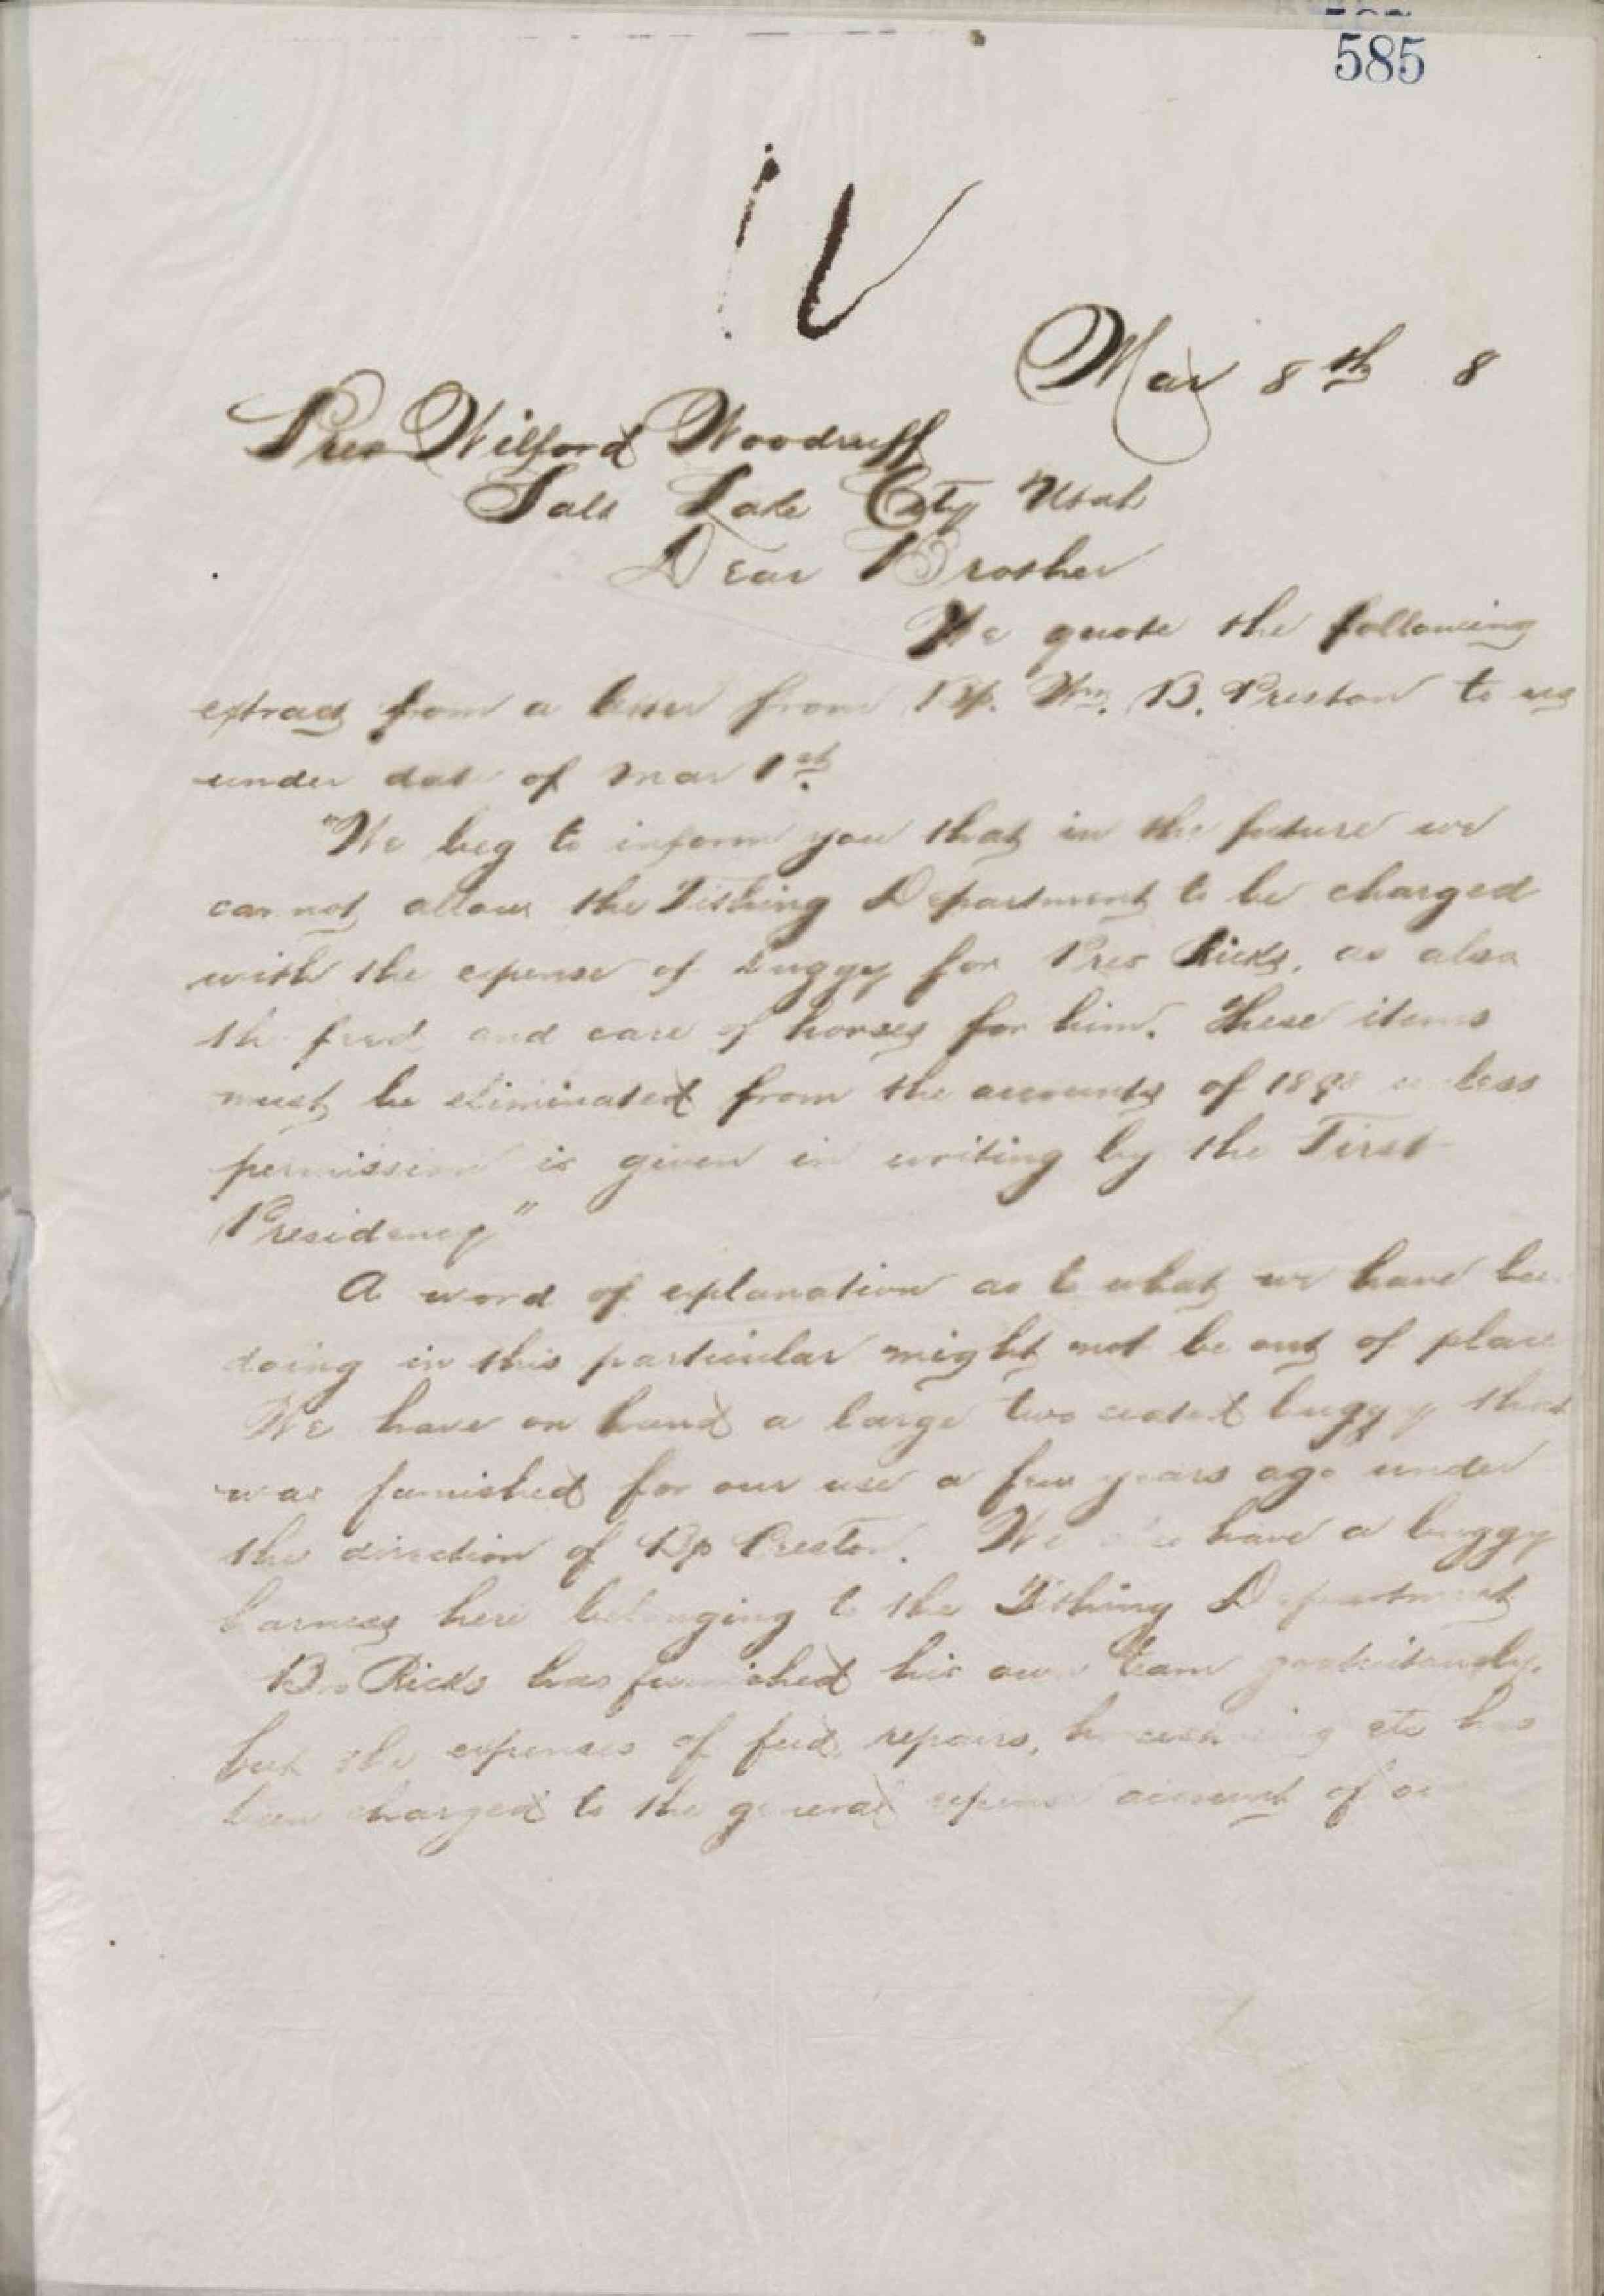 585
Mar 8th 8
Pres Wilford Woodruff
Salt Lake City Utah
Dear Brother
We quote the following
extract from a letter from Bp. Wm. B. Preston to us
under date of Mar 1st.
"We beg to inform you that in the future we
cannot allow the Tithing Department to be charged
with the expense of buggy for Pres Ricks, as also
the feed and care of horses for him. These items
must be eliminated from the accounts of 1898 unless
permission is given in writing by the First
Presidency"
A word of explanation as to what we have been
doing in this particular might not be out of place
We have on hand a large two seated buggy that
was furnished for our use a few years ago under
the direction of Bp Preston. We also have a buggy
harness here belonging to the Tithing Department
Bro Ricks has furnished his own team gratuitously.
but the expenses of feed, repairs, etc has
been charged to the general expense account of